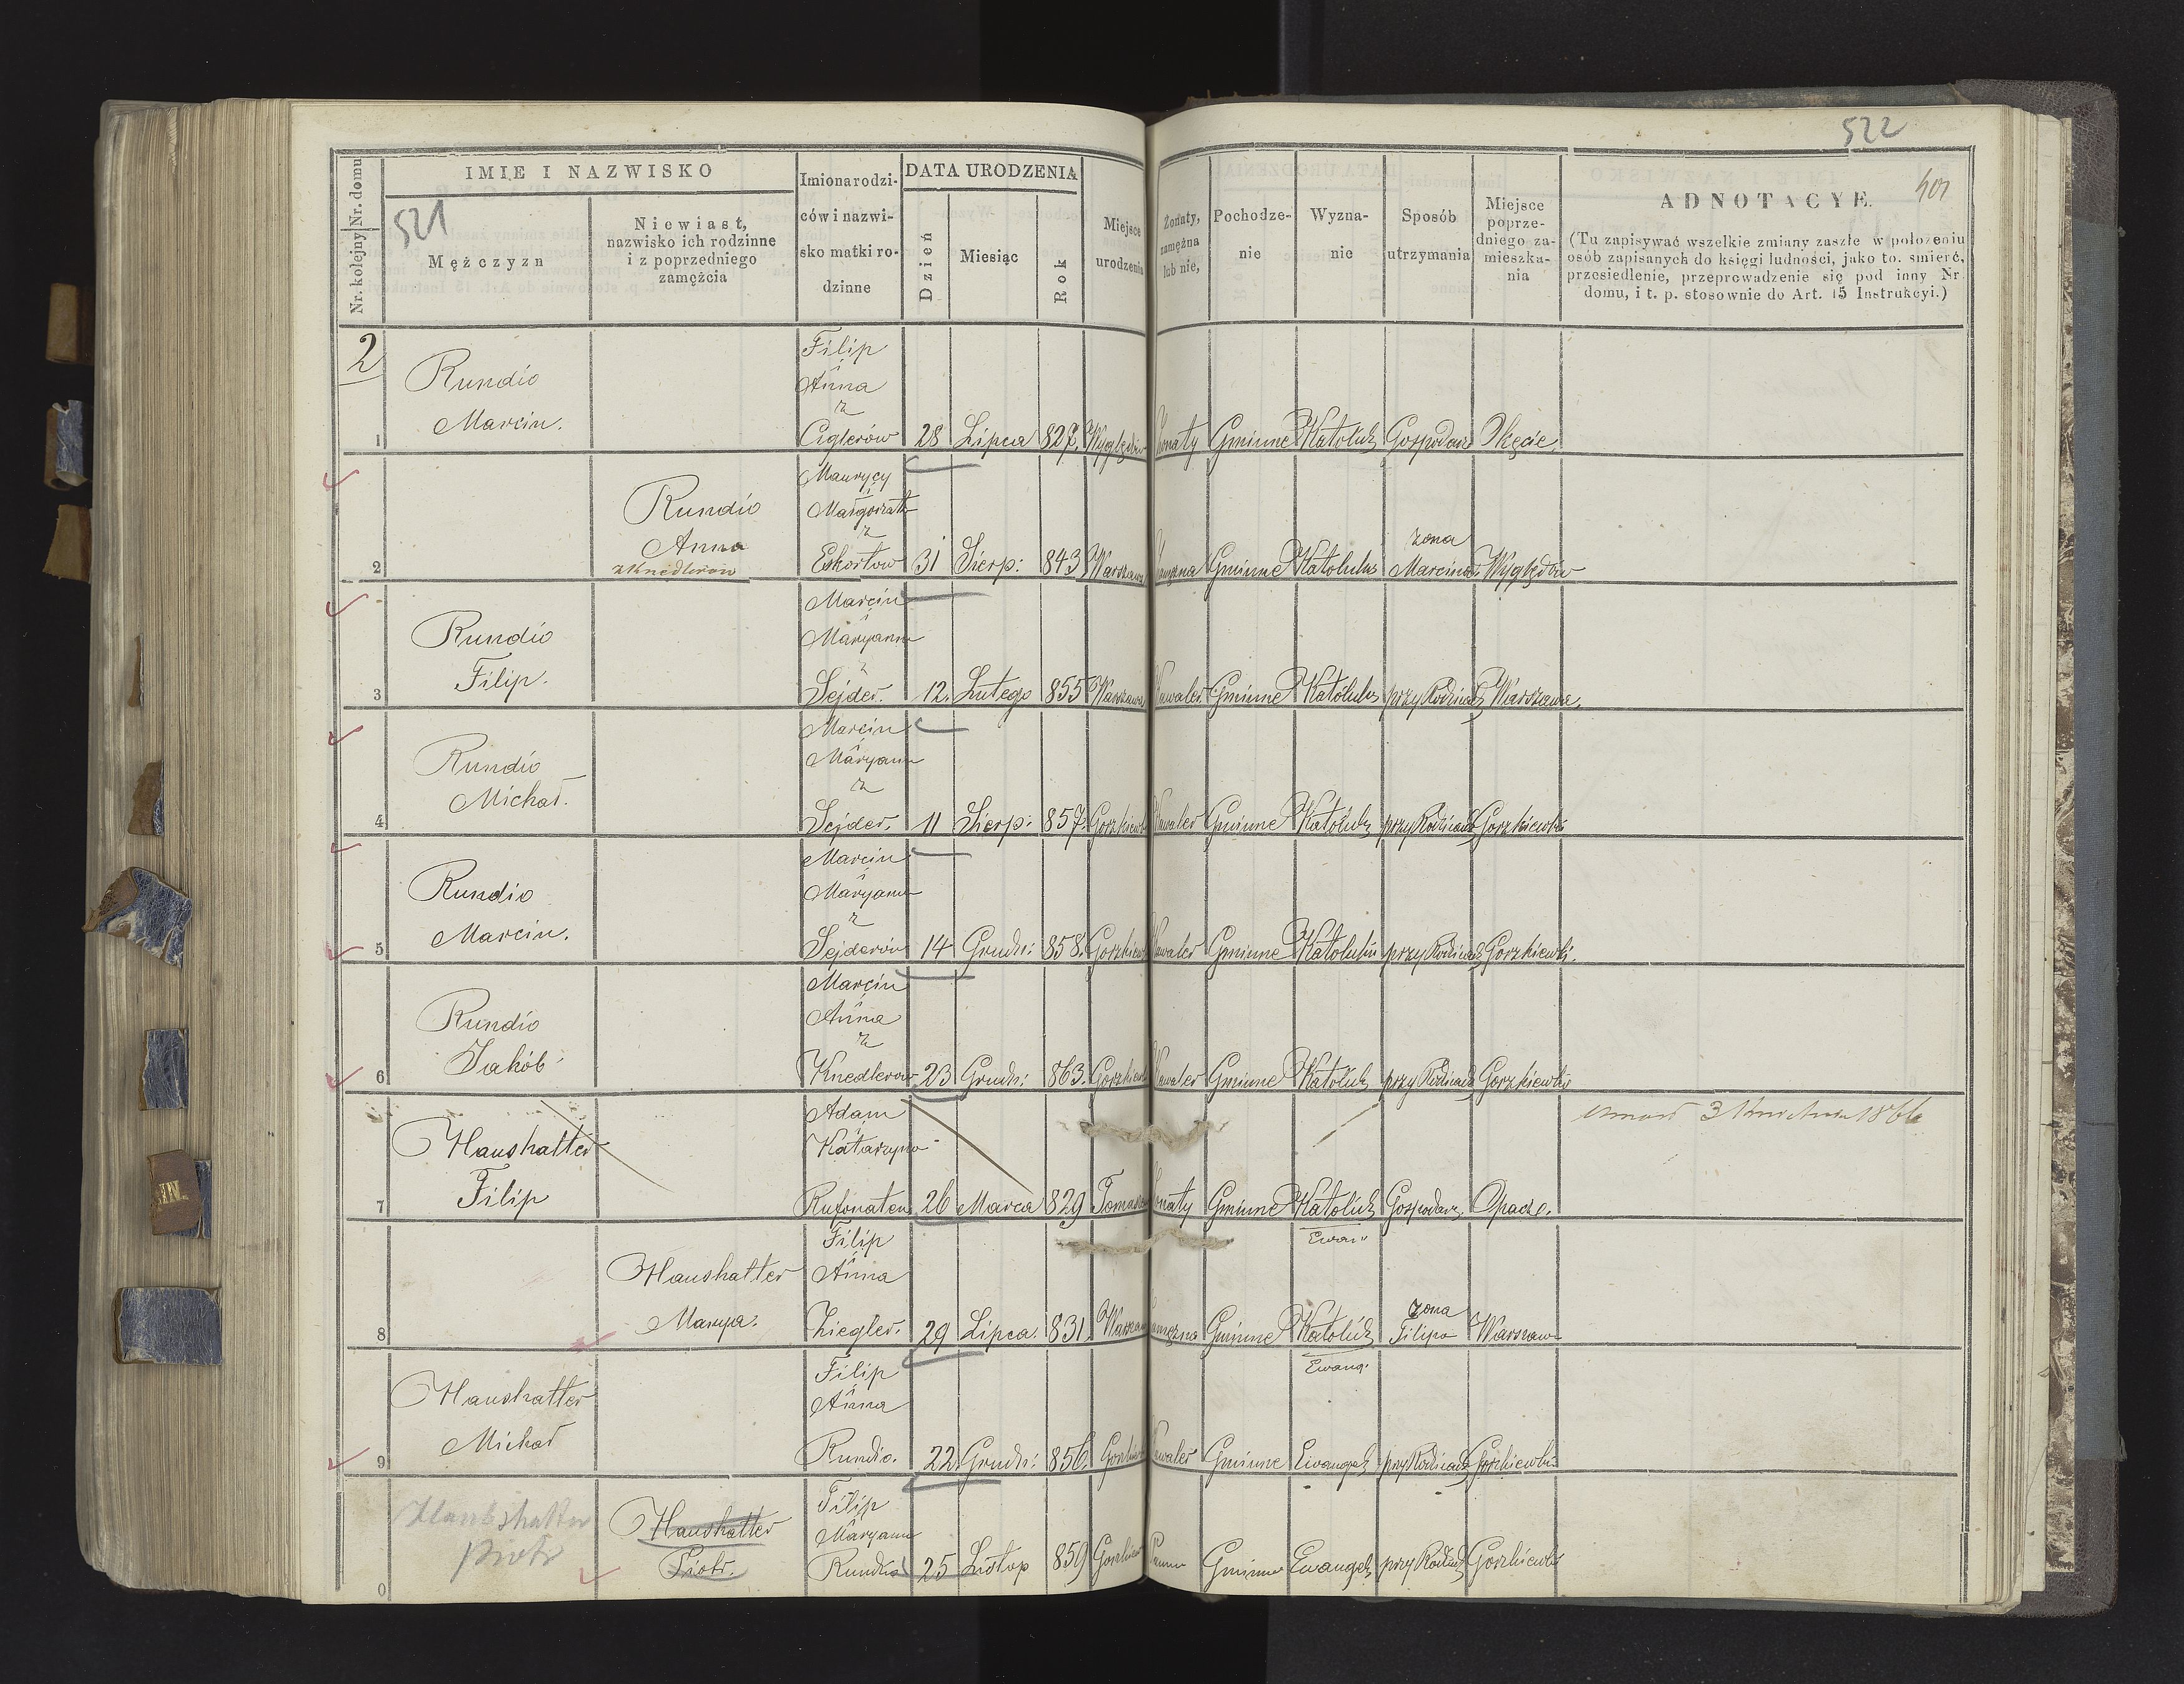 522
401
521
Nr. kolejny Nr. domu
IMIE I NAZWISKO
Mężczyzn
Niewiast,
nazwisko ich rodzinne
i z poprzedniego
zamężcia
Imiona rodzi-
ców i nazwi-
sko matki ro-
dzinne
DATA URODZENIA
Dzień
Miesiąc
Rok
Miejsce
urodzenia
Żonaty,
zamężna
lub nie,
Pochodze-
nie
Wyzna-
nie
Sposób
utrzymania
Miejsce
poprze-
dniego za-
mieszka-
nia
ADNOTACYE.
(Tu zapisywać wszelkie zmiany zaszłe w położeniu
osób zapisanych do księgi ludności, jako to. śmierć,
przesiedlenie, przeprowadzenie się pod inny Nr
domu, i t. p. stosownie do Art. 15 Instrukcyi.)
2
Filip
i
Rundio
Anna
z
Marcin.
1 Ciglerów 28 Lipca 827. Wyględów Żonaty Gminne Katolik Gospodarz Okęcie.
Maurycy
i
Rundio
Małgorzata
z
Anna
żona
z Knedlerów
2 Ekortow 31 Sierp: 843 Warszawa zamężna Gminne Katolicka Marcina Wyględów
Marcin
i
Rundio
Maryanna
z
Filip.
3 Sejder. 12. Lutego 855 Warszawa Kawaler Gminne przy Rodzicach Warszawa.
Marcin
i
Rundio
Maryanna
z
Michał.
4 Sejder. 11 Sierp: 857. Kawaler Gminne Katolik przy Rodzicach Gorzkiewki
Marcin
i
Rundio
Maryanna
z
Marcin.
5 Sejderów 14 Grudn: 858. Kawaler Gminne przy Rodzicach Gorzkiewki.
Marcin
i
Rundio
Anna
z
Jakób
6 Knedlerow 23 Grudn: 863. Kawaler Gminne Katolik przy Rodzicach Gorzkiewki
Adam
i
Haushalter
Katarzyna
umarł 3 Kwietnia 1866
Filip
7 26 Marca 829 Żonaty Gminne Katolik Gospodarz Opacze.
Ewan
Filip
i
Haushalter
Anna
Marya.
żona
8 Ziegler. 29 Lipca. 831. zamężna Gminne Katolik Filipa
Ewang.
Filip
i
Haushalter
Anna
Michał
9 Rundio. 22 Grudn: 856. Kawaler Gminne Ewangel przy Rodzicach Gorzkiewki
Filip
i
Haushalter
Piotr
Haushalter
Maryanna
Piotr.
0 Rundio 25 Listop 859 Gminne Ewangel Gorzkiewki